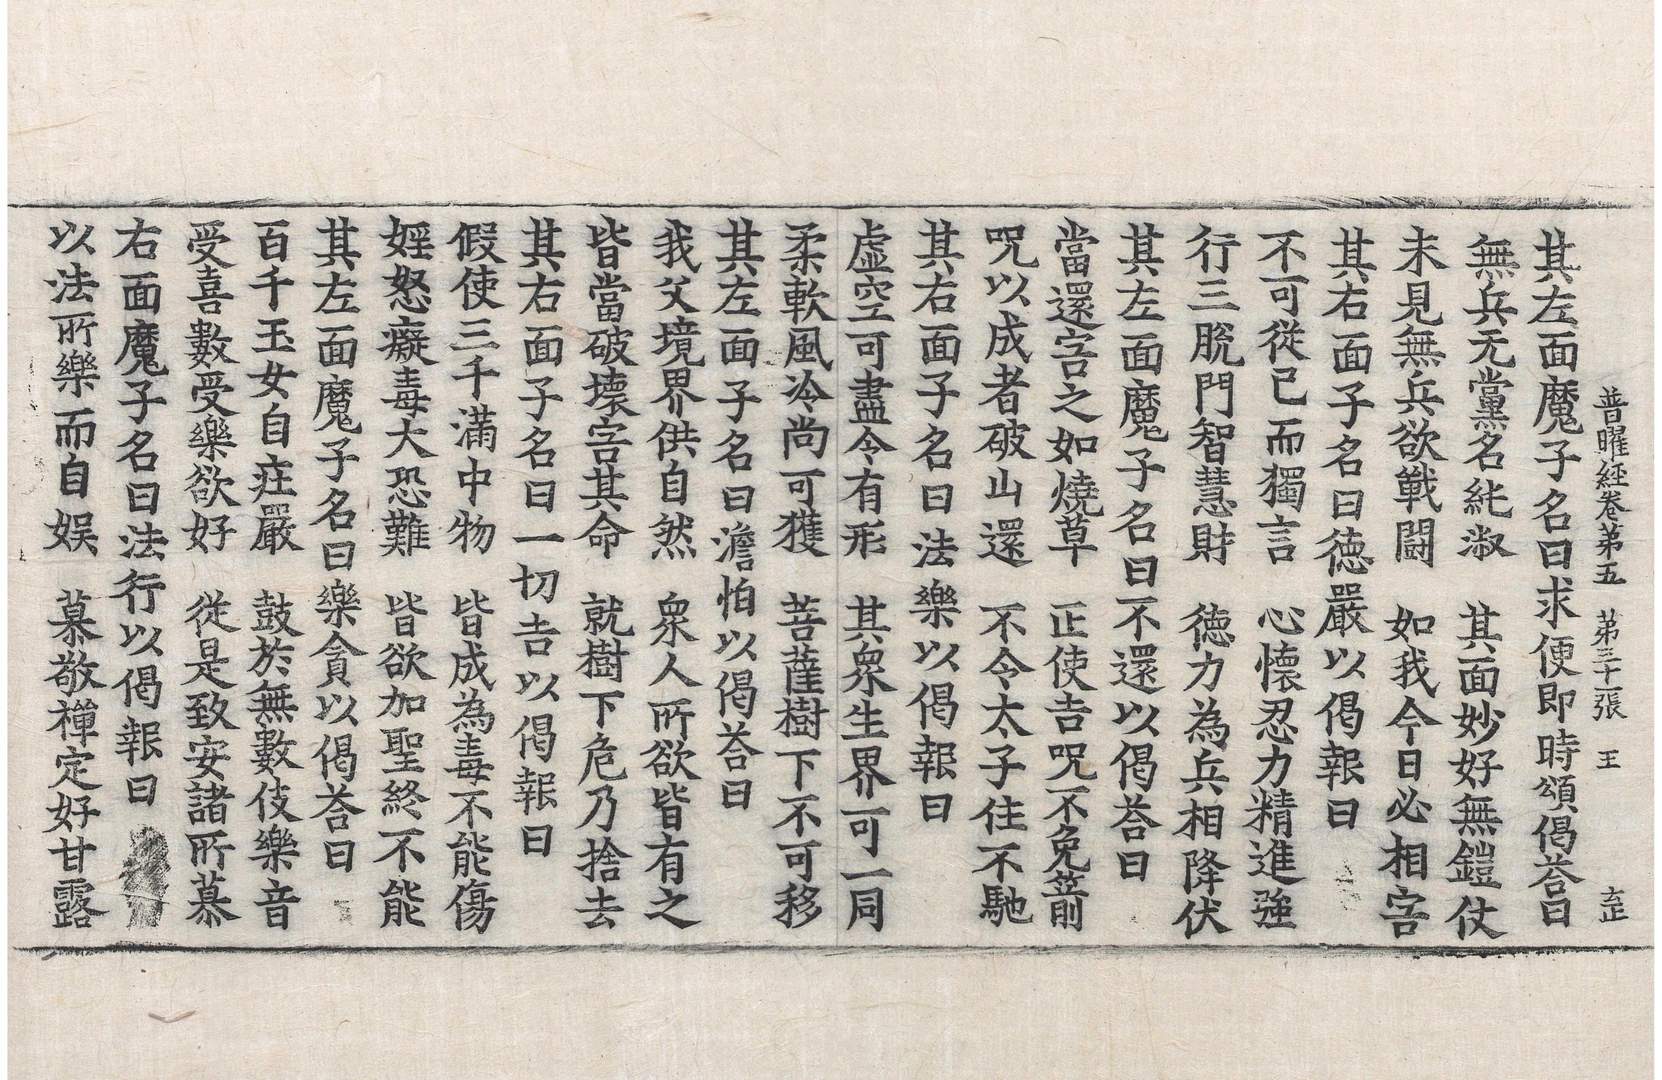 普曜經卷苐五 苐三十二張 王 㐫正
其左面魔子名曰求便即時頌偈荅曰
無兵无黨名純淑 其面妙好無鎧仗
未見無兵欲戰鬪 如我今日必相害
其右面子名曰德嚴以偈報曰
不可從已而獨言 心懷忍力精進強
行三脫門智慧財 德力為兵相降伏
其左面魔子名曰不還以偈荅曰
當還害之如燒草 正使吉呪不免箭
呪以成者破山還 不令太子住不馳
其右面子名曰法樂以偈報曰
虛空可盡令有形 其眾生界可一同
柔軟風冷尚可獲 菩薩樹下不可移
其左面子名曰澹怕以偈荅曰
我父境界供自然 眾人所欲皆有之
皆當破壞害其命 就樹下危乃捨去
其右面子名曰一切吉以偈報曰
假使三千滿中物 皆成為毒不能傷
婬怒癡毒大恐難 皆欲加聖終不能
其左面魔子名曰樂貪以偈荅曰
百千玉女自莊嚴 鼓於無數伎樂音
受喜數受樂欲好 從是致安諸所慕
右面魔子名曰法行以偈報曰
以法所樂而自娛 慕敬禪定好甘露